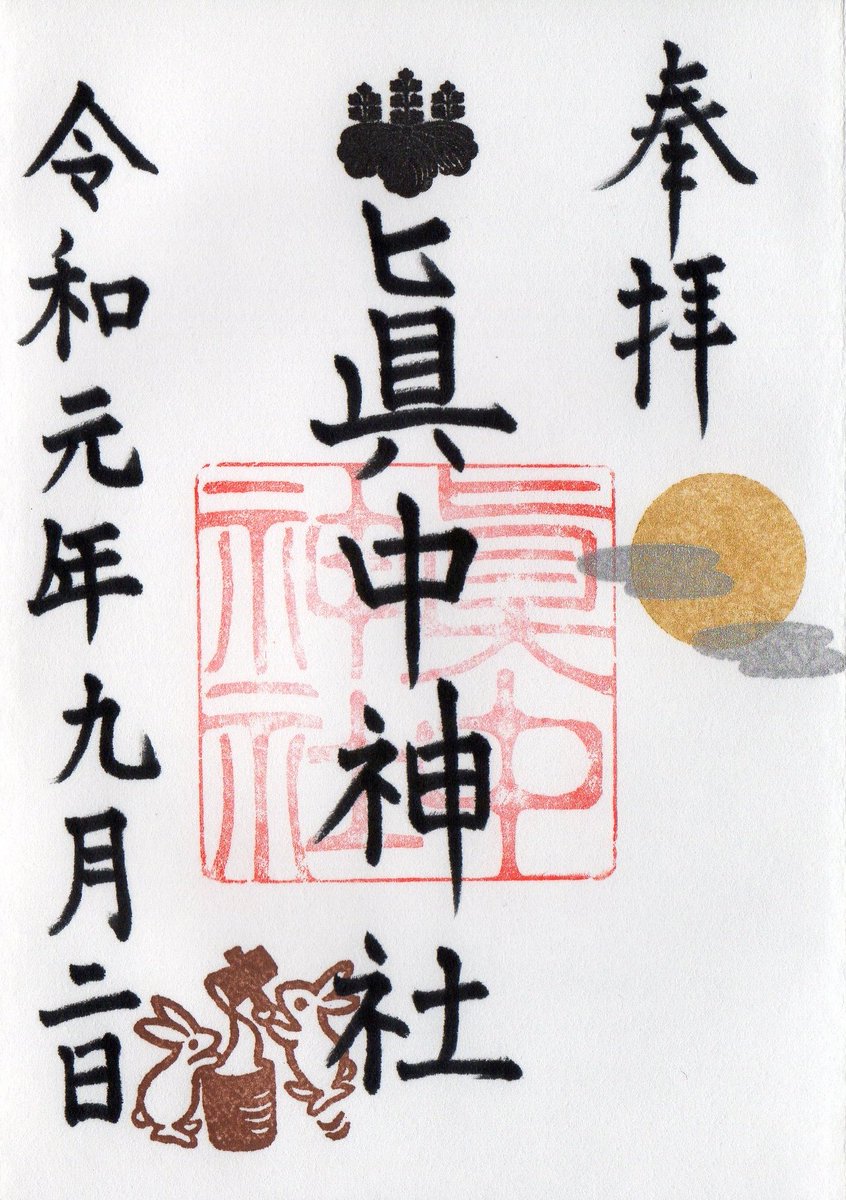 奉拝
眞中神社
眞中神社
令和元年九月二日